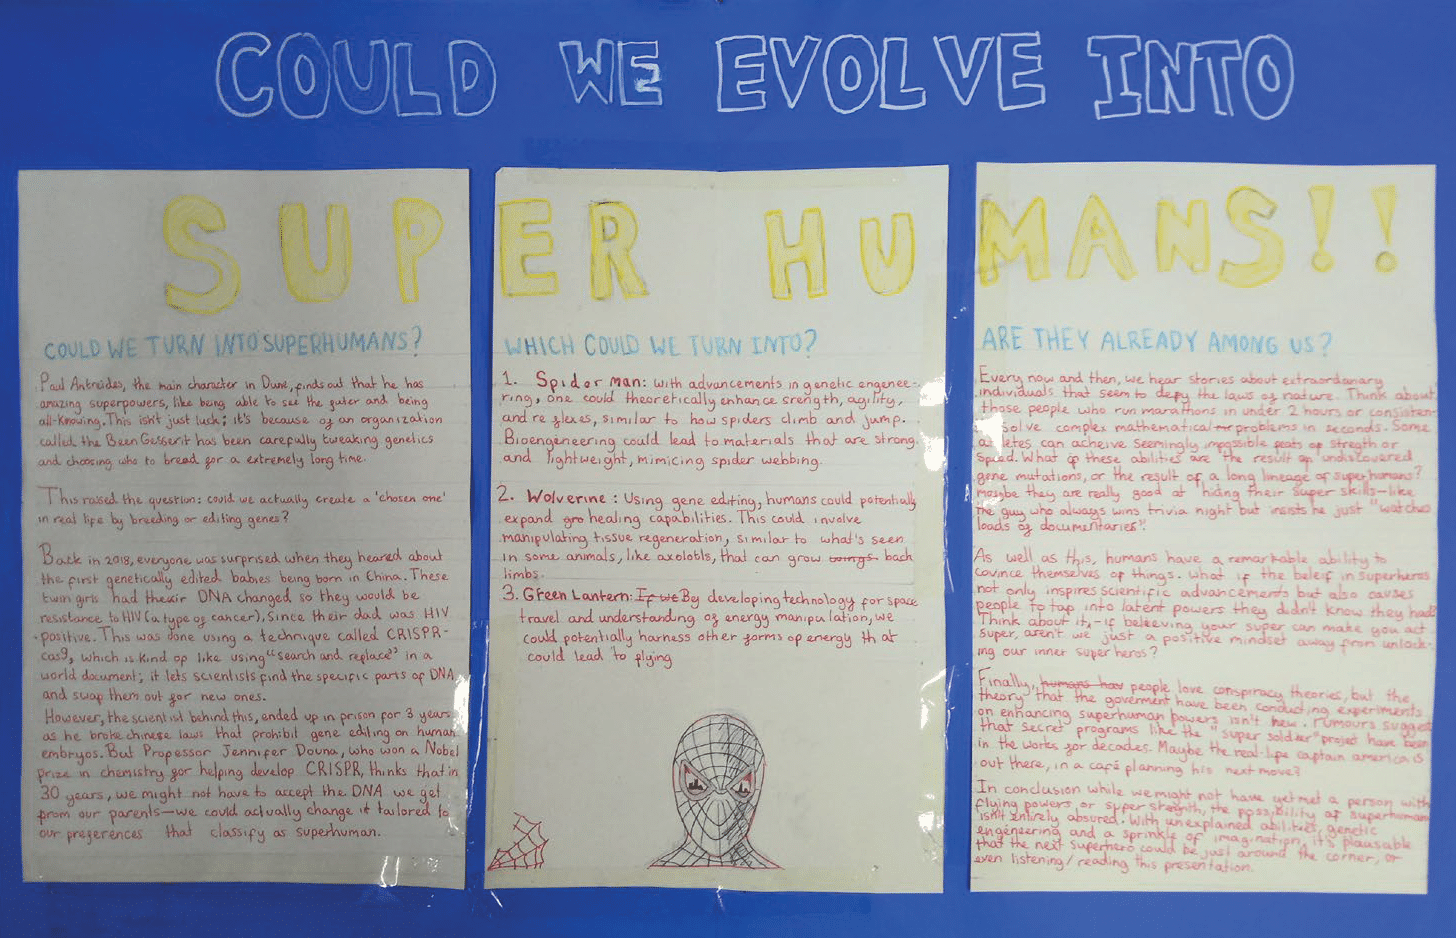 COULD WE EVOLVE INTO
SUPER HUMANS!!
COULD WE TURN INTO SUPERHUMANS?
Paul Antreides, the main character in Dune, finds out that he has
amazing superpowers, like being able to see the futer and being
all-knowing. This isn't just luck; it's because of an organization
called the Been Gesserit has been carefully tweaking genetics
and choosing who to breed for a extremely long time.
This raised the question: could we actually create a 'chosen one'
in real life by breeding or editing genes?
Back in 2018, everyone was surprised when they heared about
the first genetically edited babies being born in China. These
twin girls had their DNA changed so they would be
resistance to HIV (a type of cancer), since their dad was HIV
positive. This was done using a technique called CRISPR-
cas9, which is kind of like using "search and replace" in a
world document; it lets scientists find the specific parts of DNA
and swap them out for new ones.
However, the scientist behind this, ended up in prison for 3 years
as he broke chinese laws that prohibit gene editing on human
embryos. But Professor Jennifer Douna, who won a Nobel
prize in chemistry for helping develop CRISPR, thinks that in
30 years, we might not have to accept the DNA we get
from our parents—we could actually change it tailored to
our preferences that classify as superhuman.
WHICH COULD WE TURN INTO?
1. Spider man: with advancements in genetic engenee-
ring, one could theoretically enhance srength, agility,
and reflexes, similar to how spiders climb and jump.
Bioengeneering could lead to materials that are strong
and lightweight, mimicing spider webbing.
2. Wolverine: Using gene editing, humans could potentially
expand gro healing capabilities. This could involve
manipulating tissue regeneration, similar to what's seen
in some animals, like axolotls, that can grow back
limbs.
3. Green Lantern: If we By developing technology for space
travel and understanding of energy manipulation, we
could potentially harness other forms of energy that
could lead to flying
ARE THEY ALREADY AMONG US?
Every now and then, we hear stories about extraordanary
individuals that seem to defy the laws of nature. Think about
those people who run marathons in under 2 hours or consisten-
solve complex mathematical problems in seconds. Some
athletes can acheive seemingly impossible feats of stregth or
speed. What if these abilities are the result of undiscovered
gene mutations, or the result of a long lineage of superhumans?
maybe they are really good at hiding their super skills—like
the guy who always wins trivia night but insists he just "watches
loads of documentaries".
As well as this, humans have a remarkable ability to
covince themselves of things. What if the beleif in superheros
not only inspires scientific advancements but also causes
people to tap into latent powers they didn't know they had?
Think about it,-if beleeving your super can make you act
super, aren't we just a positive mindset away from unlock-
ing our inner superheros?
Finally, humans hav people love conspiracy theories, but the
theory that the goverment have been conducting experiments
on enhancing superhuman powers isn't new. rumours suggest
that secret programs like the "super soldier" projet have been
in the works for decades. Maybe the real-life captain america is
out there, in a café planning his next move?
In conclusion while we might not have yet met a person with
flying powers, or super stregth, the possibility of superhuman
isn't entirely absured. With unexplained abilities, genetic
engengeering and a sprinkle of imagination, it's plausable
that the next superhero could be just around the corner, or
even listening/reading this presentation.